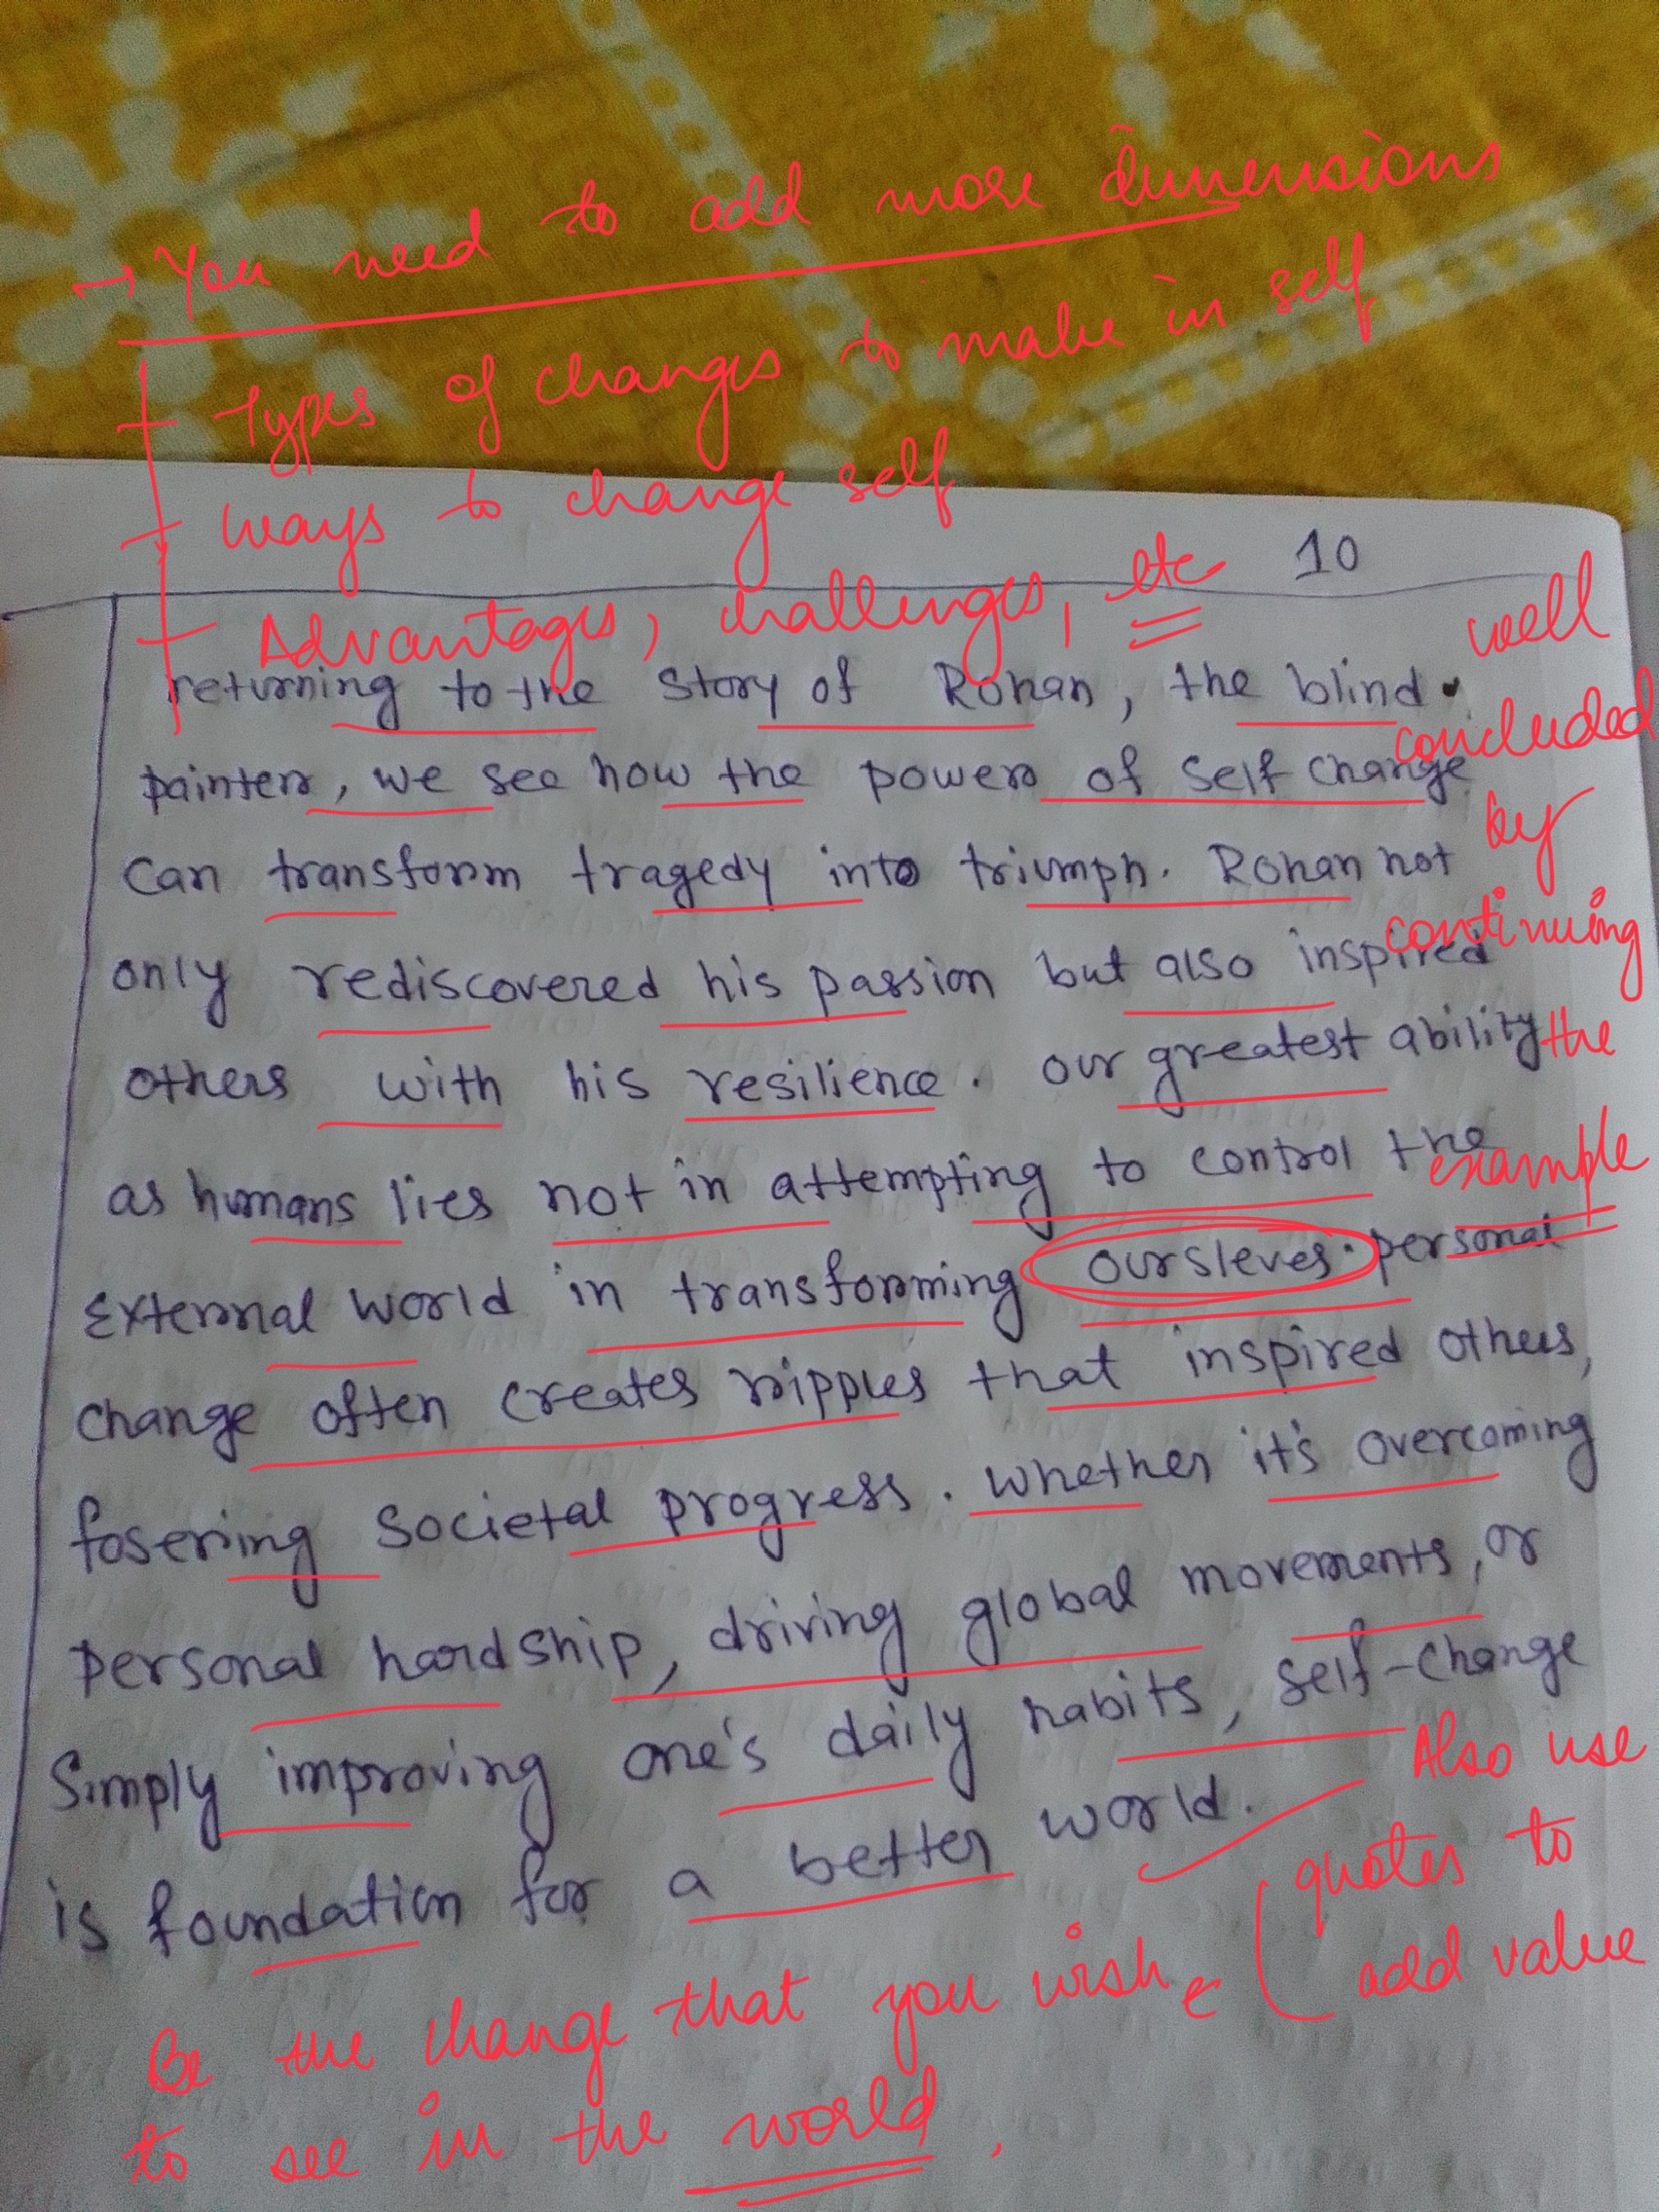 → You need to add more dimensions
Types of changes to make in self
ways to change self
Advantages, challenges, etc
10
returning to the story of Rohan, the blind
painter, we see how the power of self change
can transform tragedy into triumph. Rohan not
only rediscovered his passion but also inspired
others with his resilience. our greatest ability
as humans lies not in attempting to control the
External world in transforming oursleves. personal
change often creates ripples that inspired others,
fosering societal progress. whether it's overcoming
personal hardship, driving global movements, or
simply improving one's daily habits, self-change
is foundation for a better world.
well
concluded
by
continuing
the
example
Also use
quotes to
add value
Be the change that you wish
to see in the world.